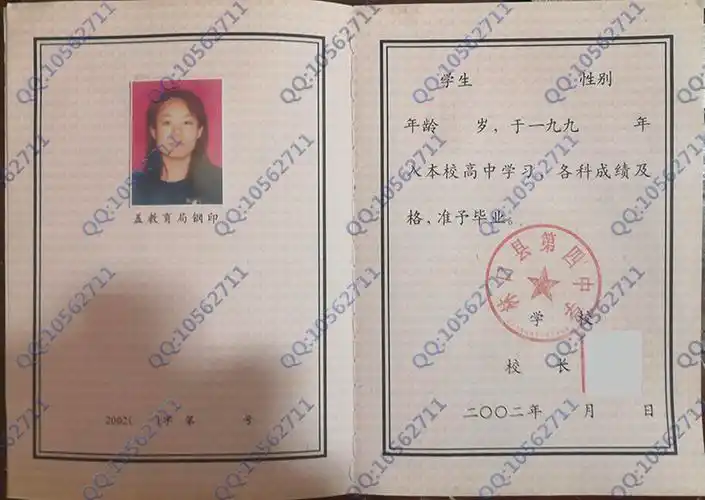 盖教育局钢印
2002( )学 第 号
学生 性别
年龄 岁，于一九九 年
入本校高中学习，各科成绩及
格，准予毕业。
县第四中学
学 校
校 长
二〇〇二年 月 日
QQ:10562711